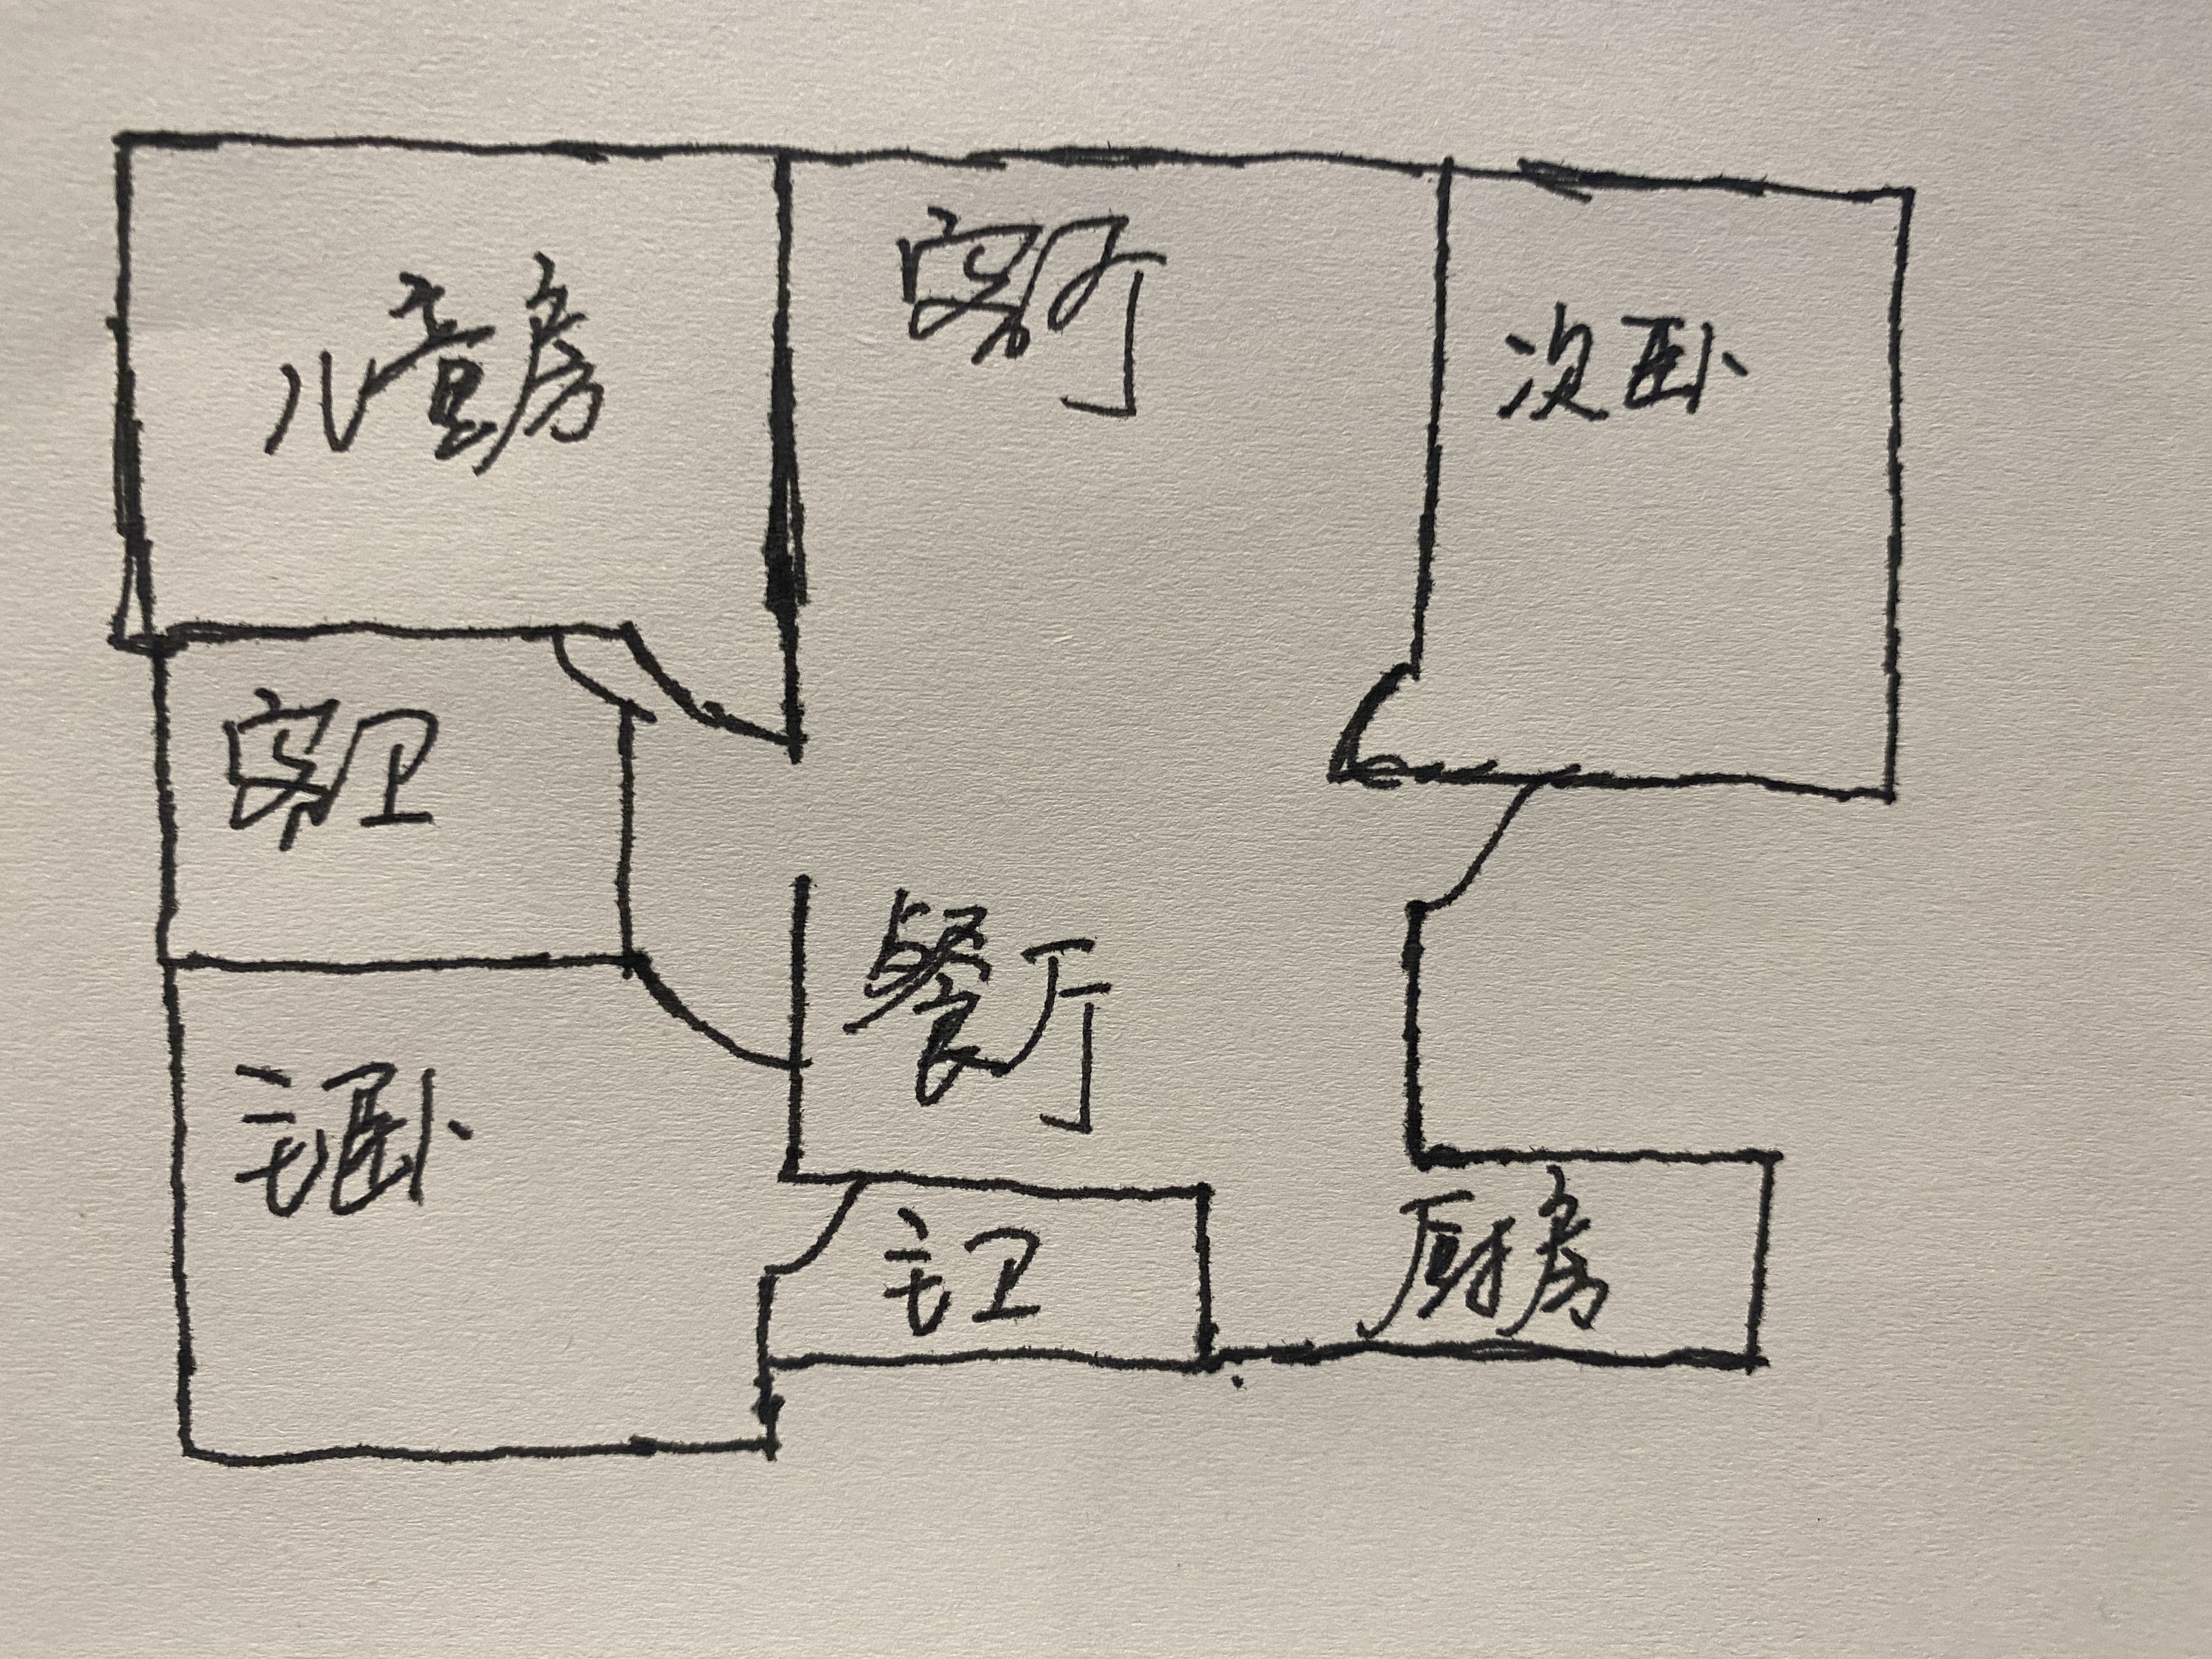 儿童房
客厅
次卧
客卫
餐厅
主卧
主卫
厨房